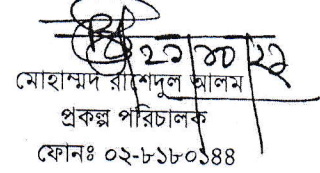 ২১ ১০ ২২
মোহাম্মদ রাশেদুল আলম
প্রকল্প পরিচালক
ফোনঃ ০২-৮১৮০১৪৪